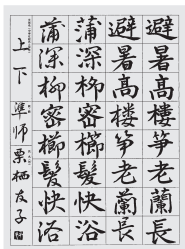 避暑髙樓筝老蘭長
避暑髙樓筝老蘭長
蒲深柳密櫛髮快浴
蒲深柳密櫛髮快浴
上下 準師 栗栖友子